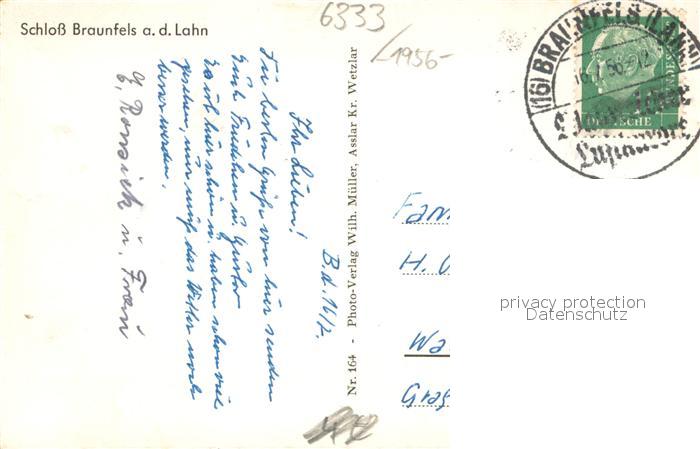 Schloß Braunfels a. d. Lahn
6333
/1956-
(16) BRAUNFELS (LAHN)
16.7.56-12
DEUTSCHE
Luftkurort
B. d. 16/7.
Ihr Lieben!
Die besten Grüße von hier senden
Euch Friedchen u. Gustav
Es ist hier schön u. haben schon viel
gesehen, nur muß das Wetter noch
besser werden.
u. Frau
Nr. 164 - Photo-Verlag Wilh. Müller, Asslar Kr. Wetzlar
Fam
H.
We
privacy protection
Datenschutz